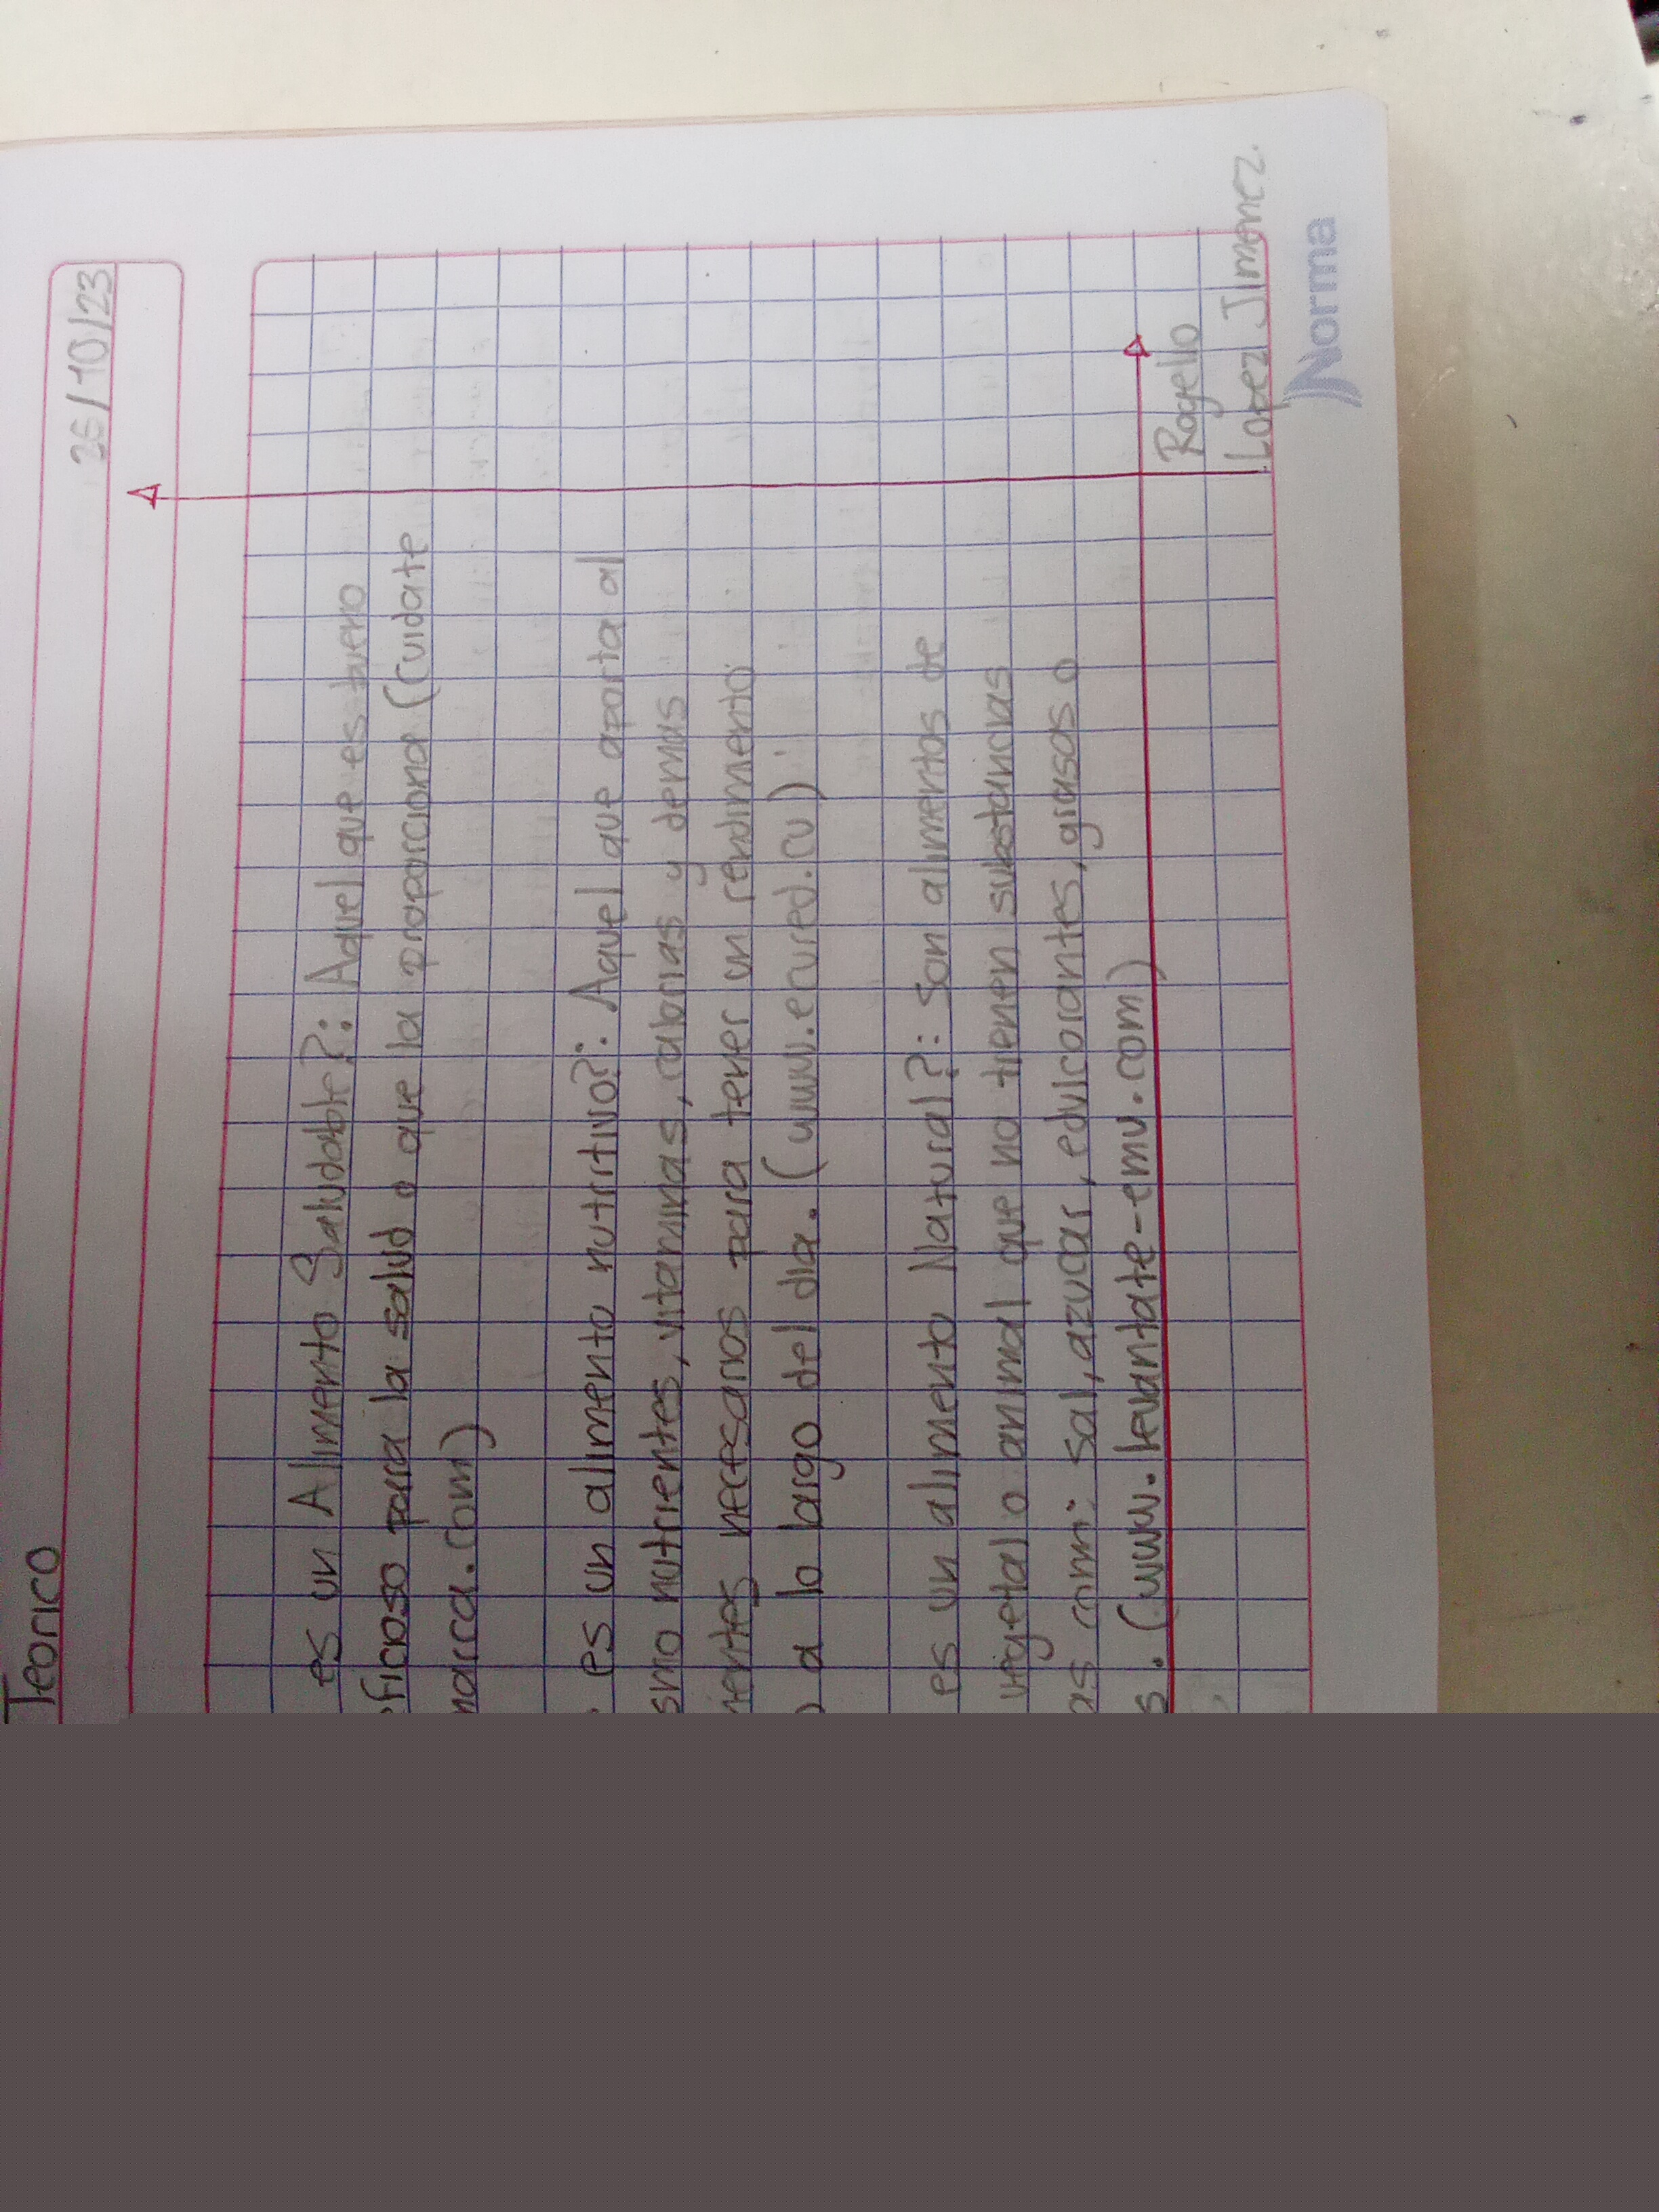 Teorico
26/10/23
es un Alimento Saludable?: Aquel que es bueno
ficioso para la salud o que la proporciona (cuidate
marca.com)
es un alimento nutritivo?: Aquel que aporta al
smo nutrientes, vitaminas, calorias y demas
necesarios para tener un rendimento
a lo largo del dia. (www.ecured.cu)
es un alimento Natural?: Son alimentos de
vegetal o animal que no tienen substancias
as como: sal, azucar, edulcorantes, grasas o
s. (www.levantate-emv.com)
Rogelio
Lopez Jimenez.
Norma